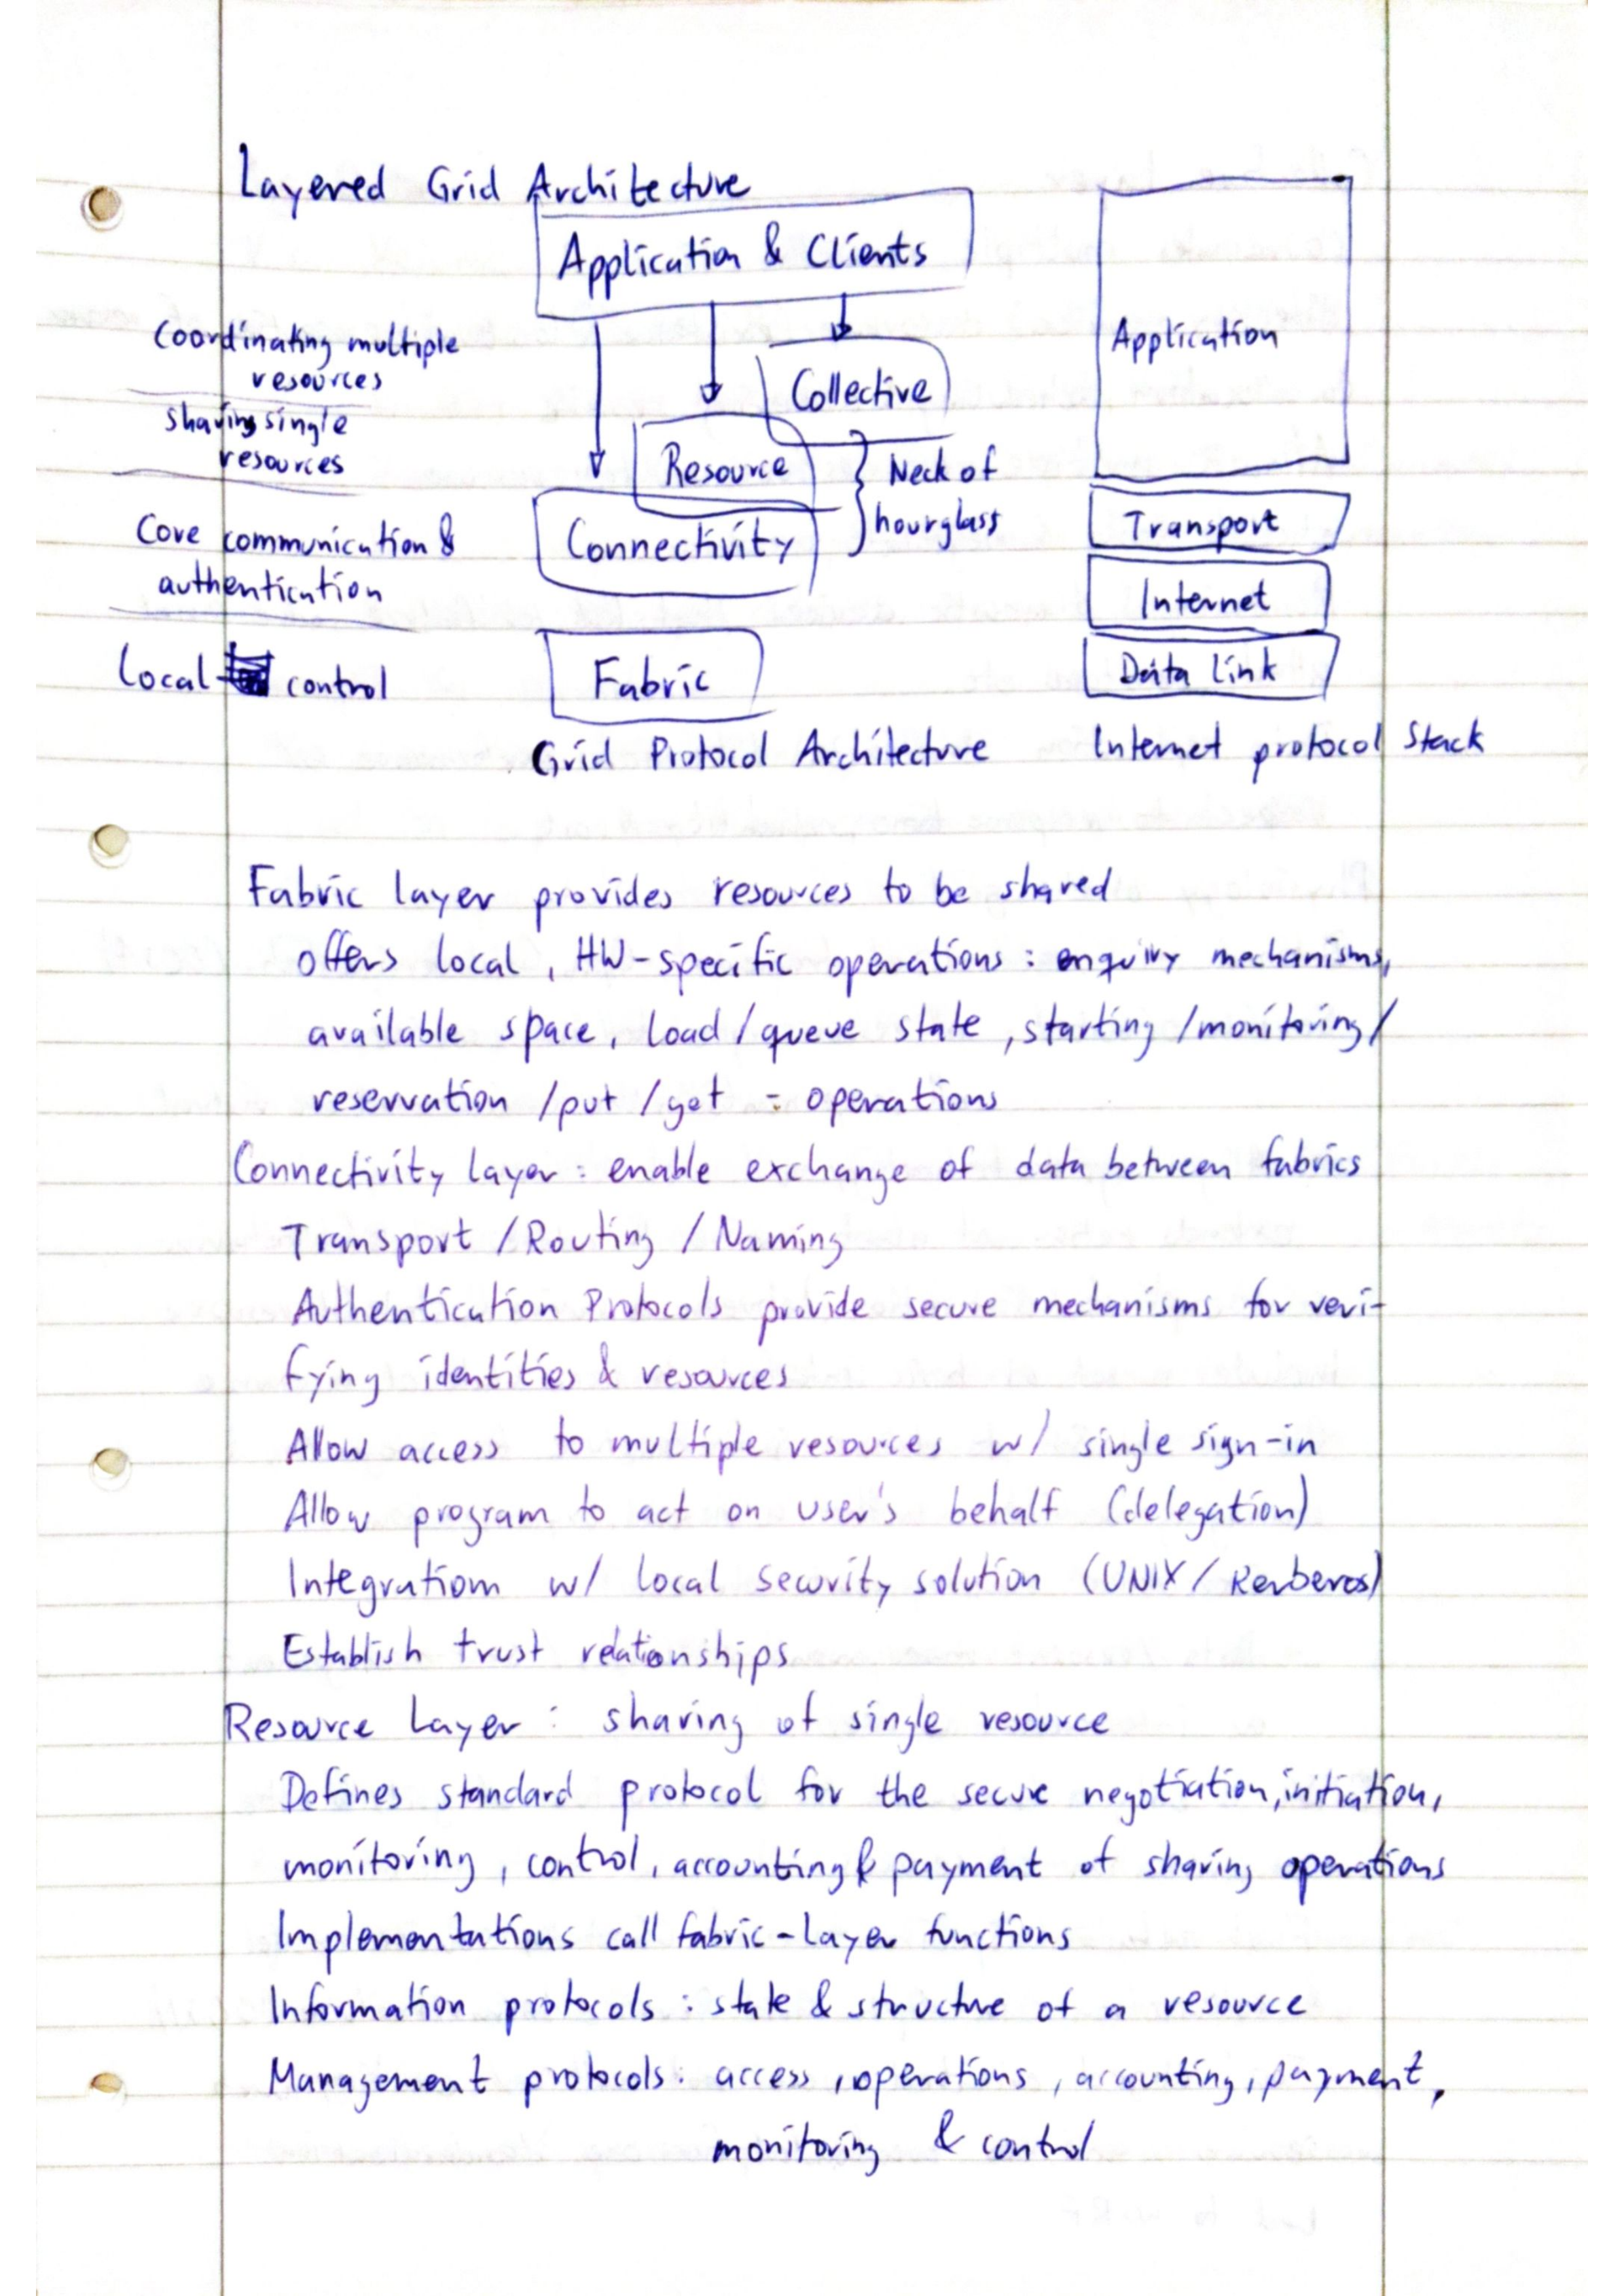 Layered Grid Architecture
Application & Clients
Coordinating multiple
resources
Collective
sharing single
resources
Resource
Neck of
hourglass
Core communication &
authentication
Connectivity
Local control
Fabric
Grid Protocol Architecture
Application
Transport
Internet
Data Link
Internet protocol Stack
Fabric layer provides resources to be shared
offers local, HW-specific operations : enquiry mechanisms,
available space, load/queue state, starting /monitoring/
reservation /put /get - operations
Connectivity layer : enable exchange of data between fabrics
Transport /Routing /Naming
Authentication Protocols provide secure mechanisms for veri-
fying identities & resources
Allow access to multiple resources w/ single sign-in
Allow program to act on user's behalf (delegation)
Integratiom w/ local security solution (UNIX/ Kerberos)
Establish trust relationships
Resource Layer : sharing of single resource
Defines standard protocol for the secure negotiation, initiation,
monitoring, control, accounting & payment of sharing operations
Implementations call fabric-layer functions
Information protocols : state & structure of a resource
Management protocols : access, operations, accounting, payment,
monitoring & control